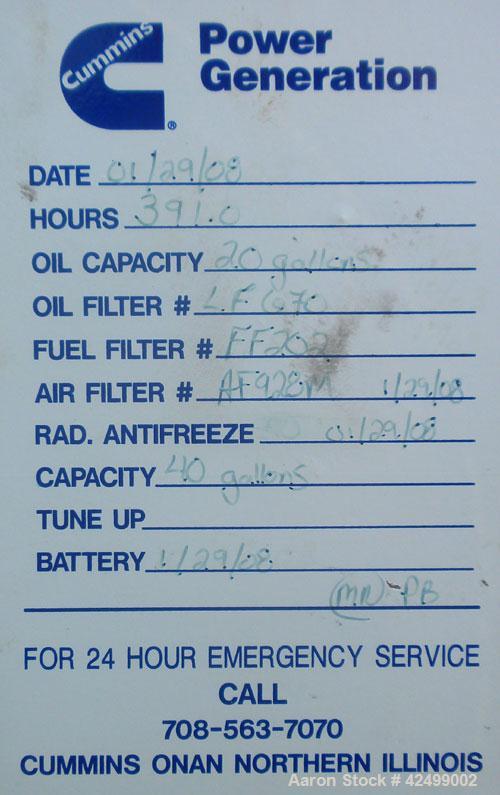 Cummins
Power
Generation
®
DATE 01/29/08
HOURS 391.0
OIL CAPACITY 20 gallons
OIL FILTER # LF670
FUEL FILTER # FF202
AIR FILTER # AF928M 1/29/08
RAD. ANTIFREEZE 01/29/08
CAPACITY 40 gallons
TUNE UP
BATTERY 1/29/08
(MN) PB
FOR 24 HOUR EMERGENCY SERVICE
CALL
708-563-7070
CUMMINS ONAN NORTHERN ILLINOIS
Aaron Stock # 42499002